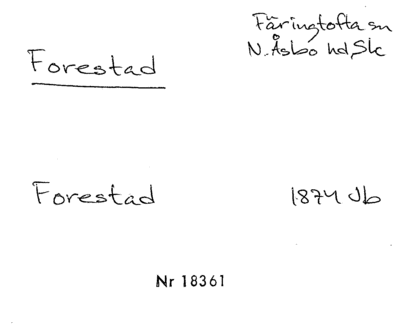 Färingtofta sn
N. Åsbo hd, Sk
Forestad
Forestad 1874 Jb
Nr 18361